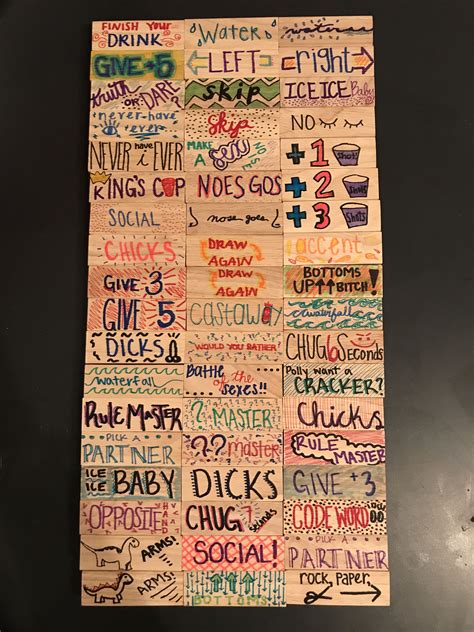 FINISH YOUR
DRINK
Water
GIVE +5
LEFT
right
truth OR DARE?
SKIP
ICE ICE Baby
never-have-i
ever
Skip
NO
NEVER have i EVER
MAKE
A
+1 Shot!
KING'S CUP
NOES GOS
+2 Shots
SOCIAL
nose goes
+3 Shots
CHICKS
DRAW
AGAIN
accent
GIVE 3
DRAW
AGAIN
BOTTOMS
UP BITCH!
GIVE 5
CASTAW
waterfall
DICKS
WOULD YOU RATHER
CHUG 6 Seconds
waterfall
Battle
of the
SEXES!!
Polly want a
CRACKER?
RULE MASTER
? MASTER
Chicks
PICK A
PARTNER
?? master
RULE
MASTER
ICE
ICE BABY
DICKS
GIVE +3
OPPOSITE HAND
CHUG 7 Seconds
CODE WORD
ARMS!
SOCIAL!
PICK A
PARTNER
ARMS!
BOTTOMS
rock, paper,